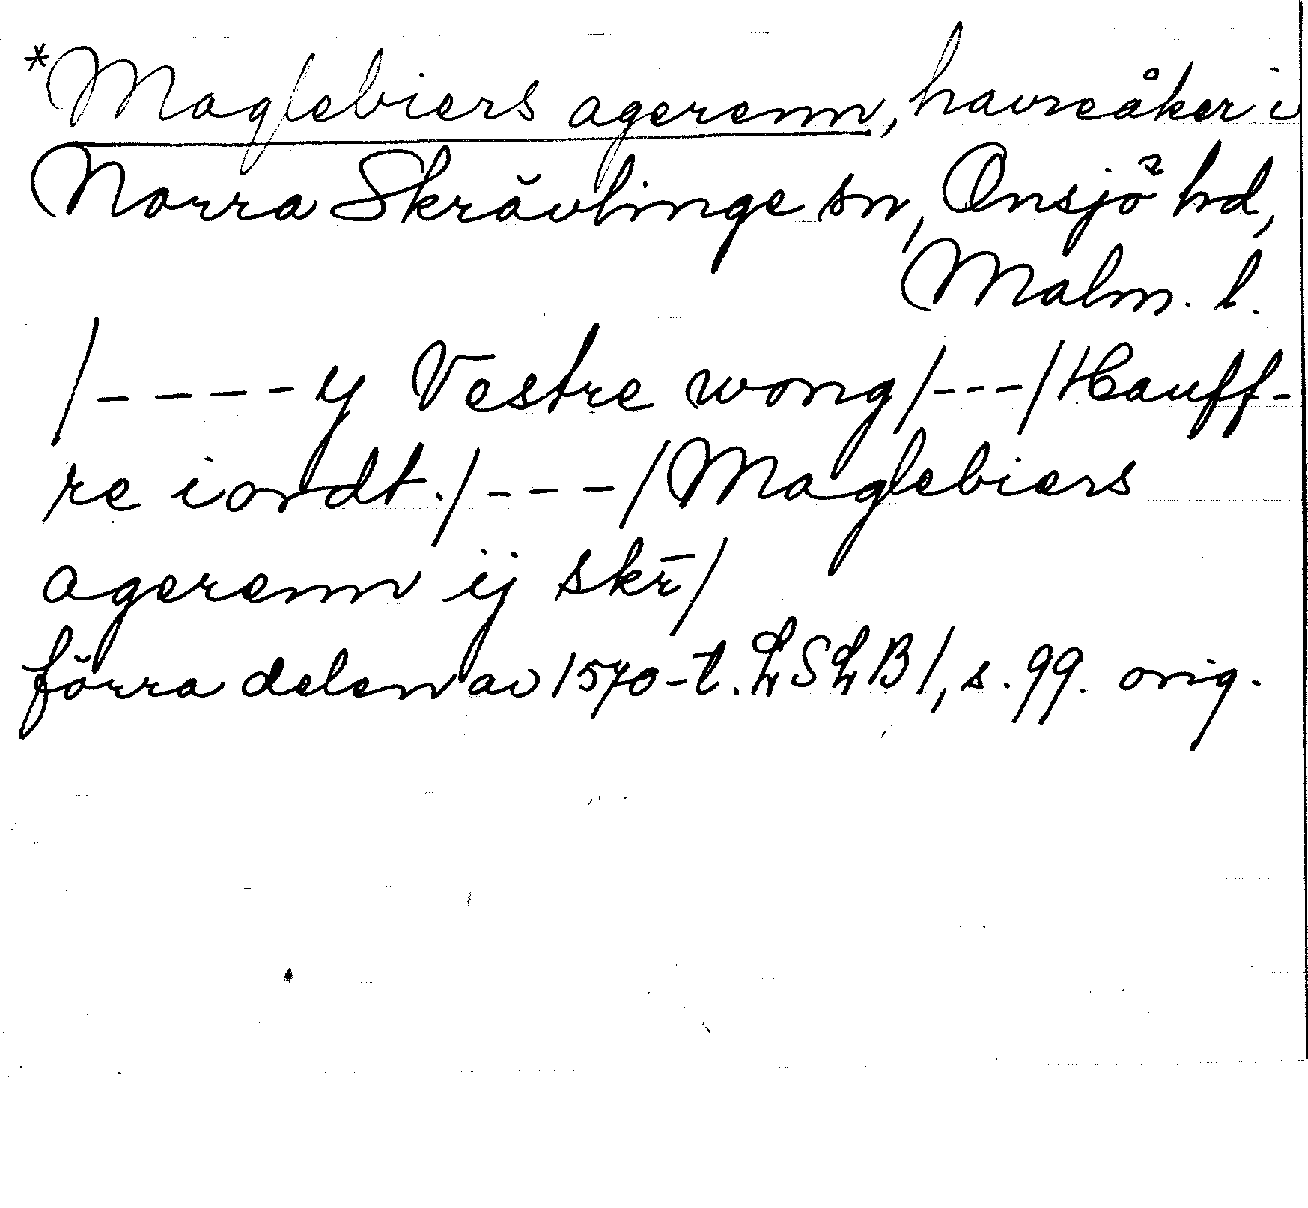 *Maglebiers agerenn, havreåker i
Norra Skrävlinge sn, Onsjö hd,
Malm. l.
/----y Vestre wong/---/Hauff-
re iordt./---/Maglebiers
agerenn ij skr̄/
förra delen av 1570-t. LSLB1, s. 99. orig.